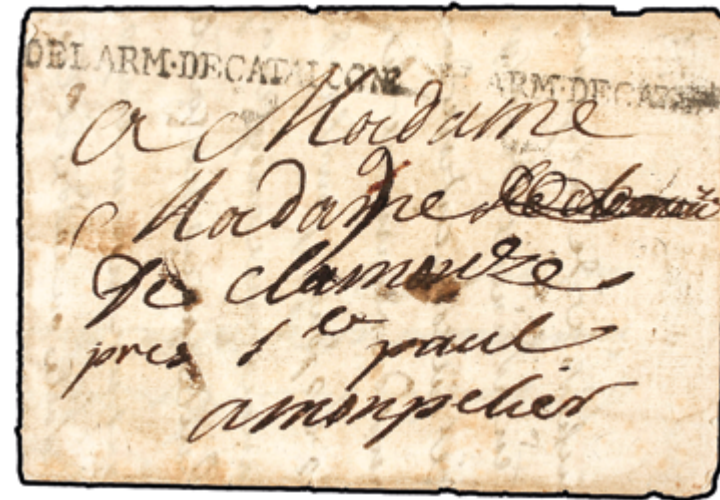 DEL ARM·DECATALOGNE ARM·DECA
a Madame
Madame
De clamouze
pres s^te paul
amonpelier